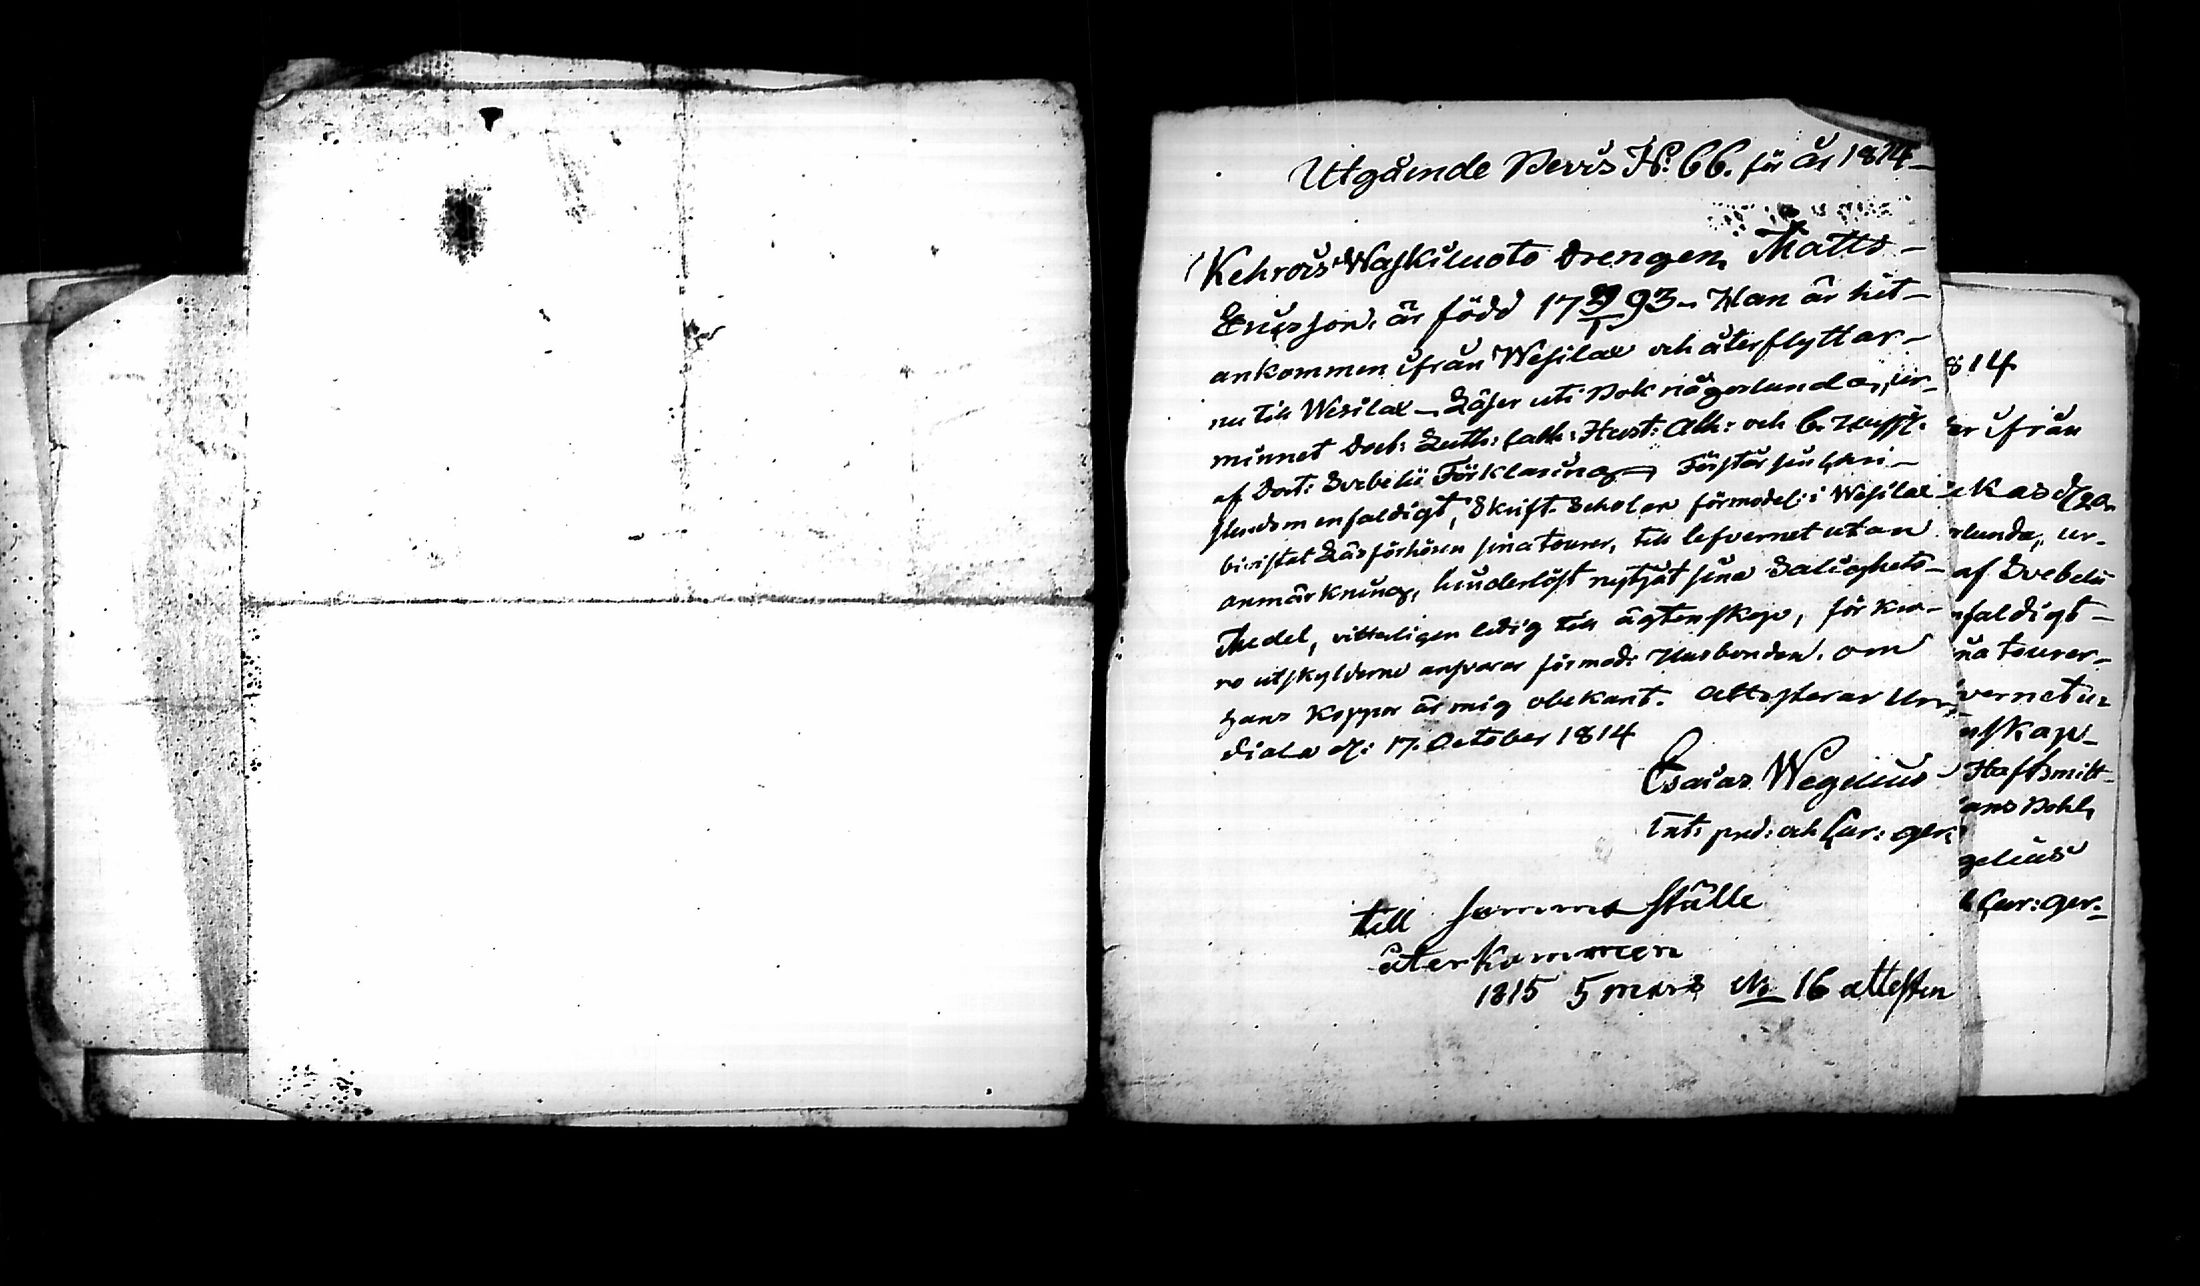 Utgående Bevis No: 66. för år 1814
Kehrois Waskiluoto Drengen, Matts
Ericsson, är född 17 29/1 93 – Han är hit-
ankommen ifrån Wesilax och återflyttar
nu till Wesilax – Läser uti Bok någorlunda, ur
minnet Doct: Luth: Cath: Hust: Ath: och
af Doct: Svebelii Förklaring – Förstår sin Chri-
stendom enfaldigt, Skrift-Scholan förmodel: i Wesilax
bivistat Läsförhören sina tourer, till lefvernet utan
anmärkning, hinderlöst nytjat sina Salighets-
Medel, vitterligen ledig till ägtenskap, för kro-
no utskylderne ansvarar förmodl Husbonden. om
hans Koppor är mig obekant. Attesterar Ur-
diala d: 17. October 1814
Esaias Wegelius
Int: pred: och Cur: ger:
till samma ställe
återkommen
1815 5 mars No 16 attesten
814
er ifrån
rlunda, ur-
af Svebelii
nfaldigt –
na tourer –
vernet u:
nskap –
ans Bohl,
gelius
Cur: ger: